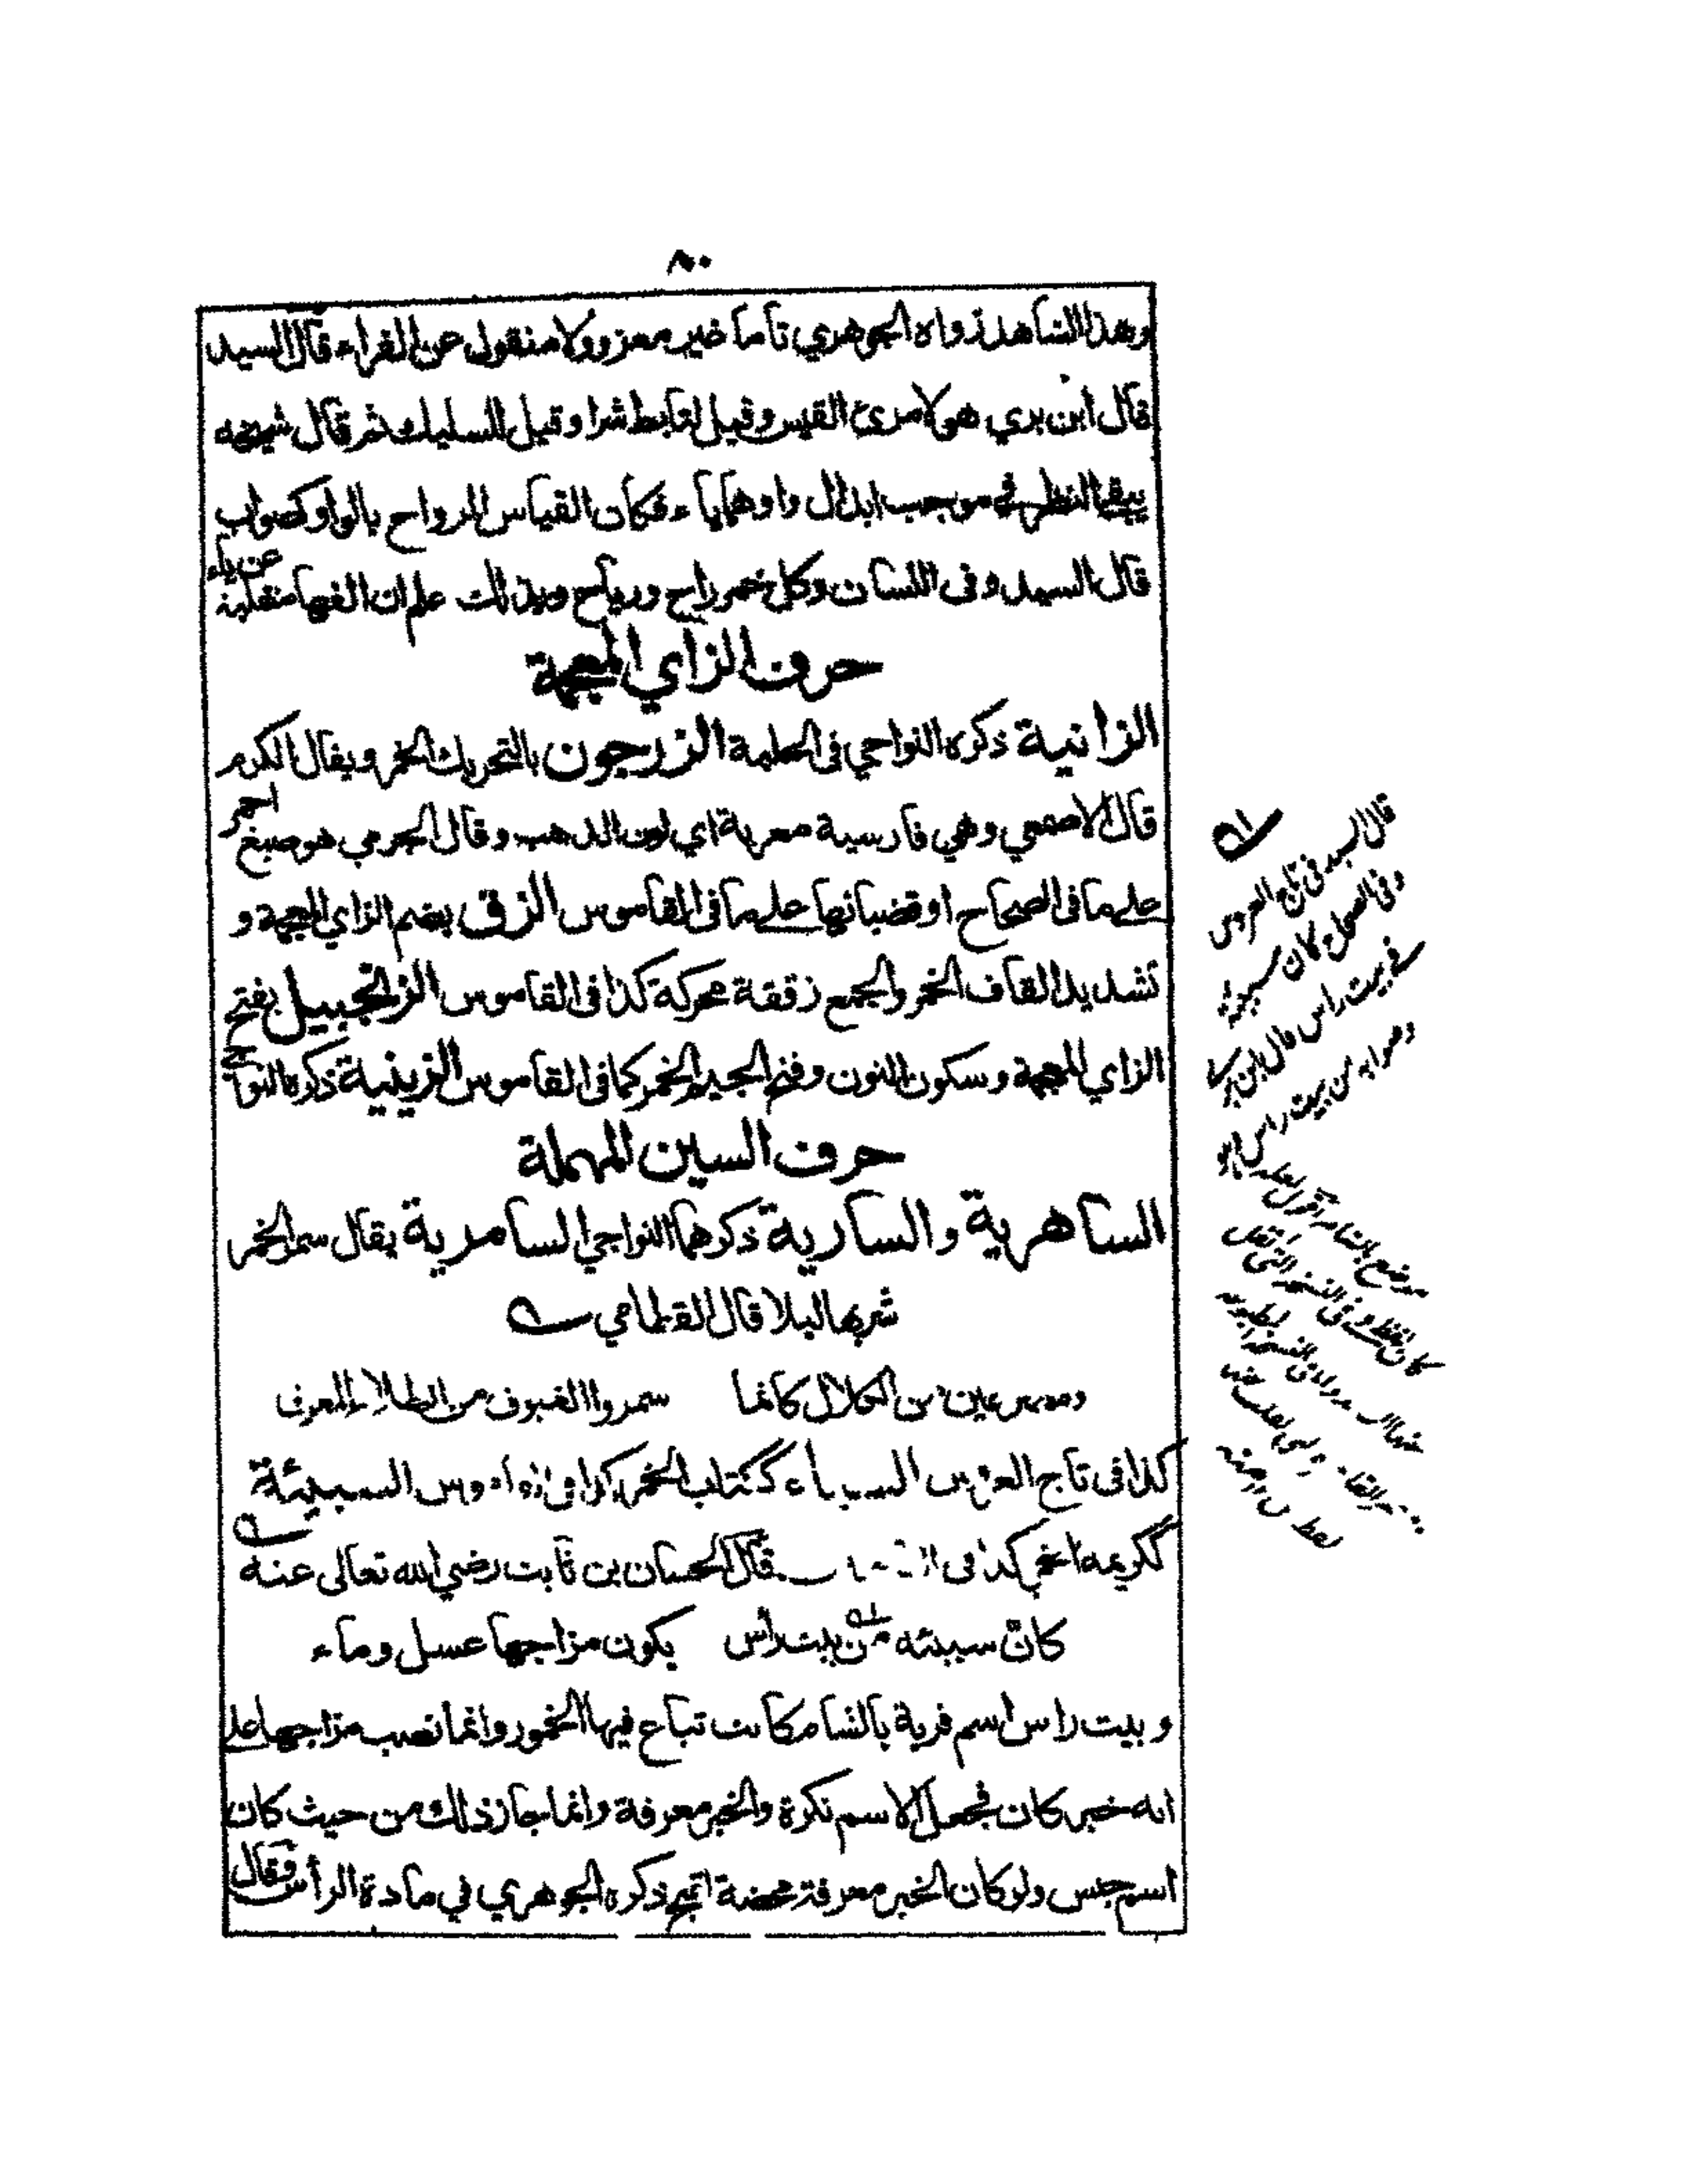 ٨٠
وهذا الشاهد رواه الجوهري تاما غير معزو ولا منقول عن الفراء قال السيد
قال ابن بري هو لامرئ القيس وقيل لتابط شرا وقيل للسليك ثم قال شيخه
يبقى النظر في موجب ابدال واوها ياء فكان القياس الرواح بالواو كصواب
قال السيد وفى اللسان وكل خمر راح ورياح وبذلك علم ان الفها منقلبة عن ياء
حرف الزاي المعجمة
الزانية ذكره النواجي فى الحلبة الزرجون بالتحريك الخمر ويقال الكرم
قال الاصمعي وهي فارسية معربة اي لون الذهب وقال الجرمي هو صبغ احمر
على ما فى الصحاح او قضبانها على ما فى القاموس الزق بضم الزاي المعجمة و
تشديد القاف الخمر والجمع زققة محركة كذا فى القاموس الزنجبيل بفتح
الزاي المعجمة وسكون النون وفتح الجيم الخمر كما فى القاموس الزينبية ذكره النواجي
حرف السين المهملة
الساهرية والسارية ذكرهما النواجي السامرية يقال سمر الخمر
شربها ليلا قال القطامي
من الكلال كانما سمروا الغبوق من الطلاء المعرق
كذا فى تاج العروس السباء ككتاب الخمر كذا فى القاموس السبيئة
ككريمة الخمر كذا فى قال الحسان بن ثابت رضي الله تعالى عنه
كان سبيئة من بيت رأس يكون مزاجها عسل وماء
و بيت راس اسم قرية بالشام كانت تباع فيها الخمور وانما نصب مزاجها على
انه خبر كان فجعل الاسم نكرة والخبر معرفة وانما جاز ذلك من حيث كان
اسم جنس ولو كان الخبر معرفة محضة لقبح ذكره الجوهري في مادة الرأس وقال
قال السيد فى تاج العروس
وفى الصحاح كان سبيئة
من بيت راس قال ابن بري
وصوابه من بيت راس
موضع بالشام اقول لعله